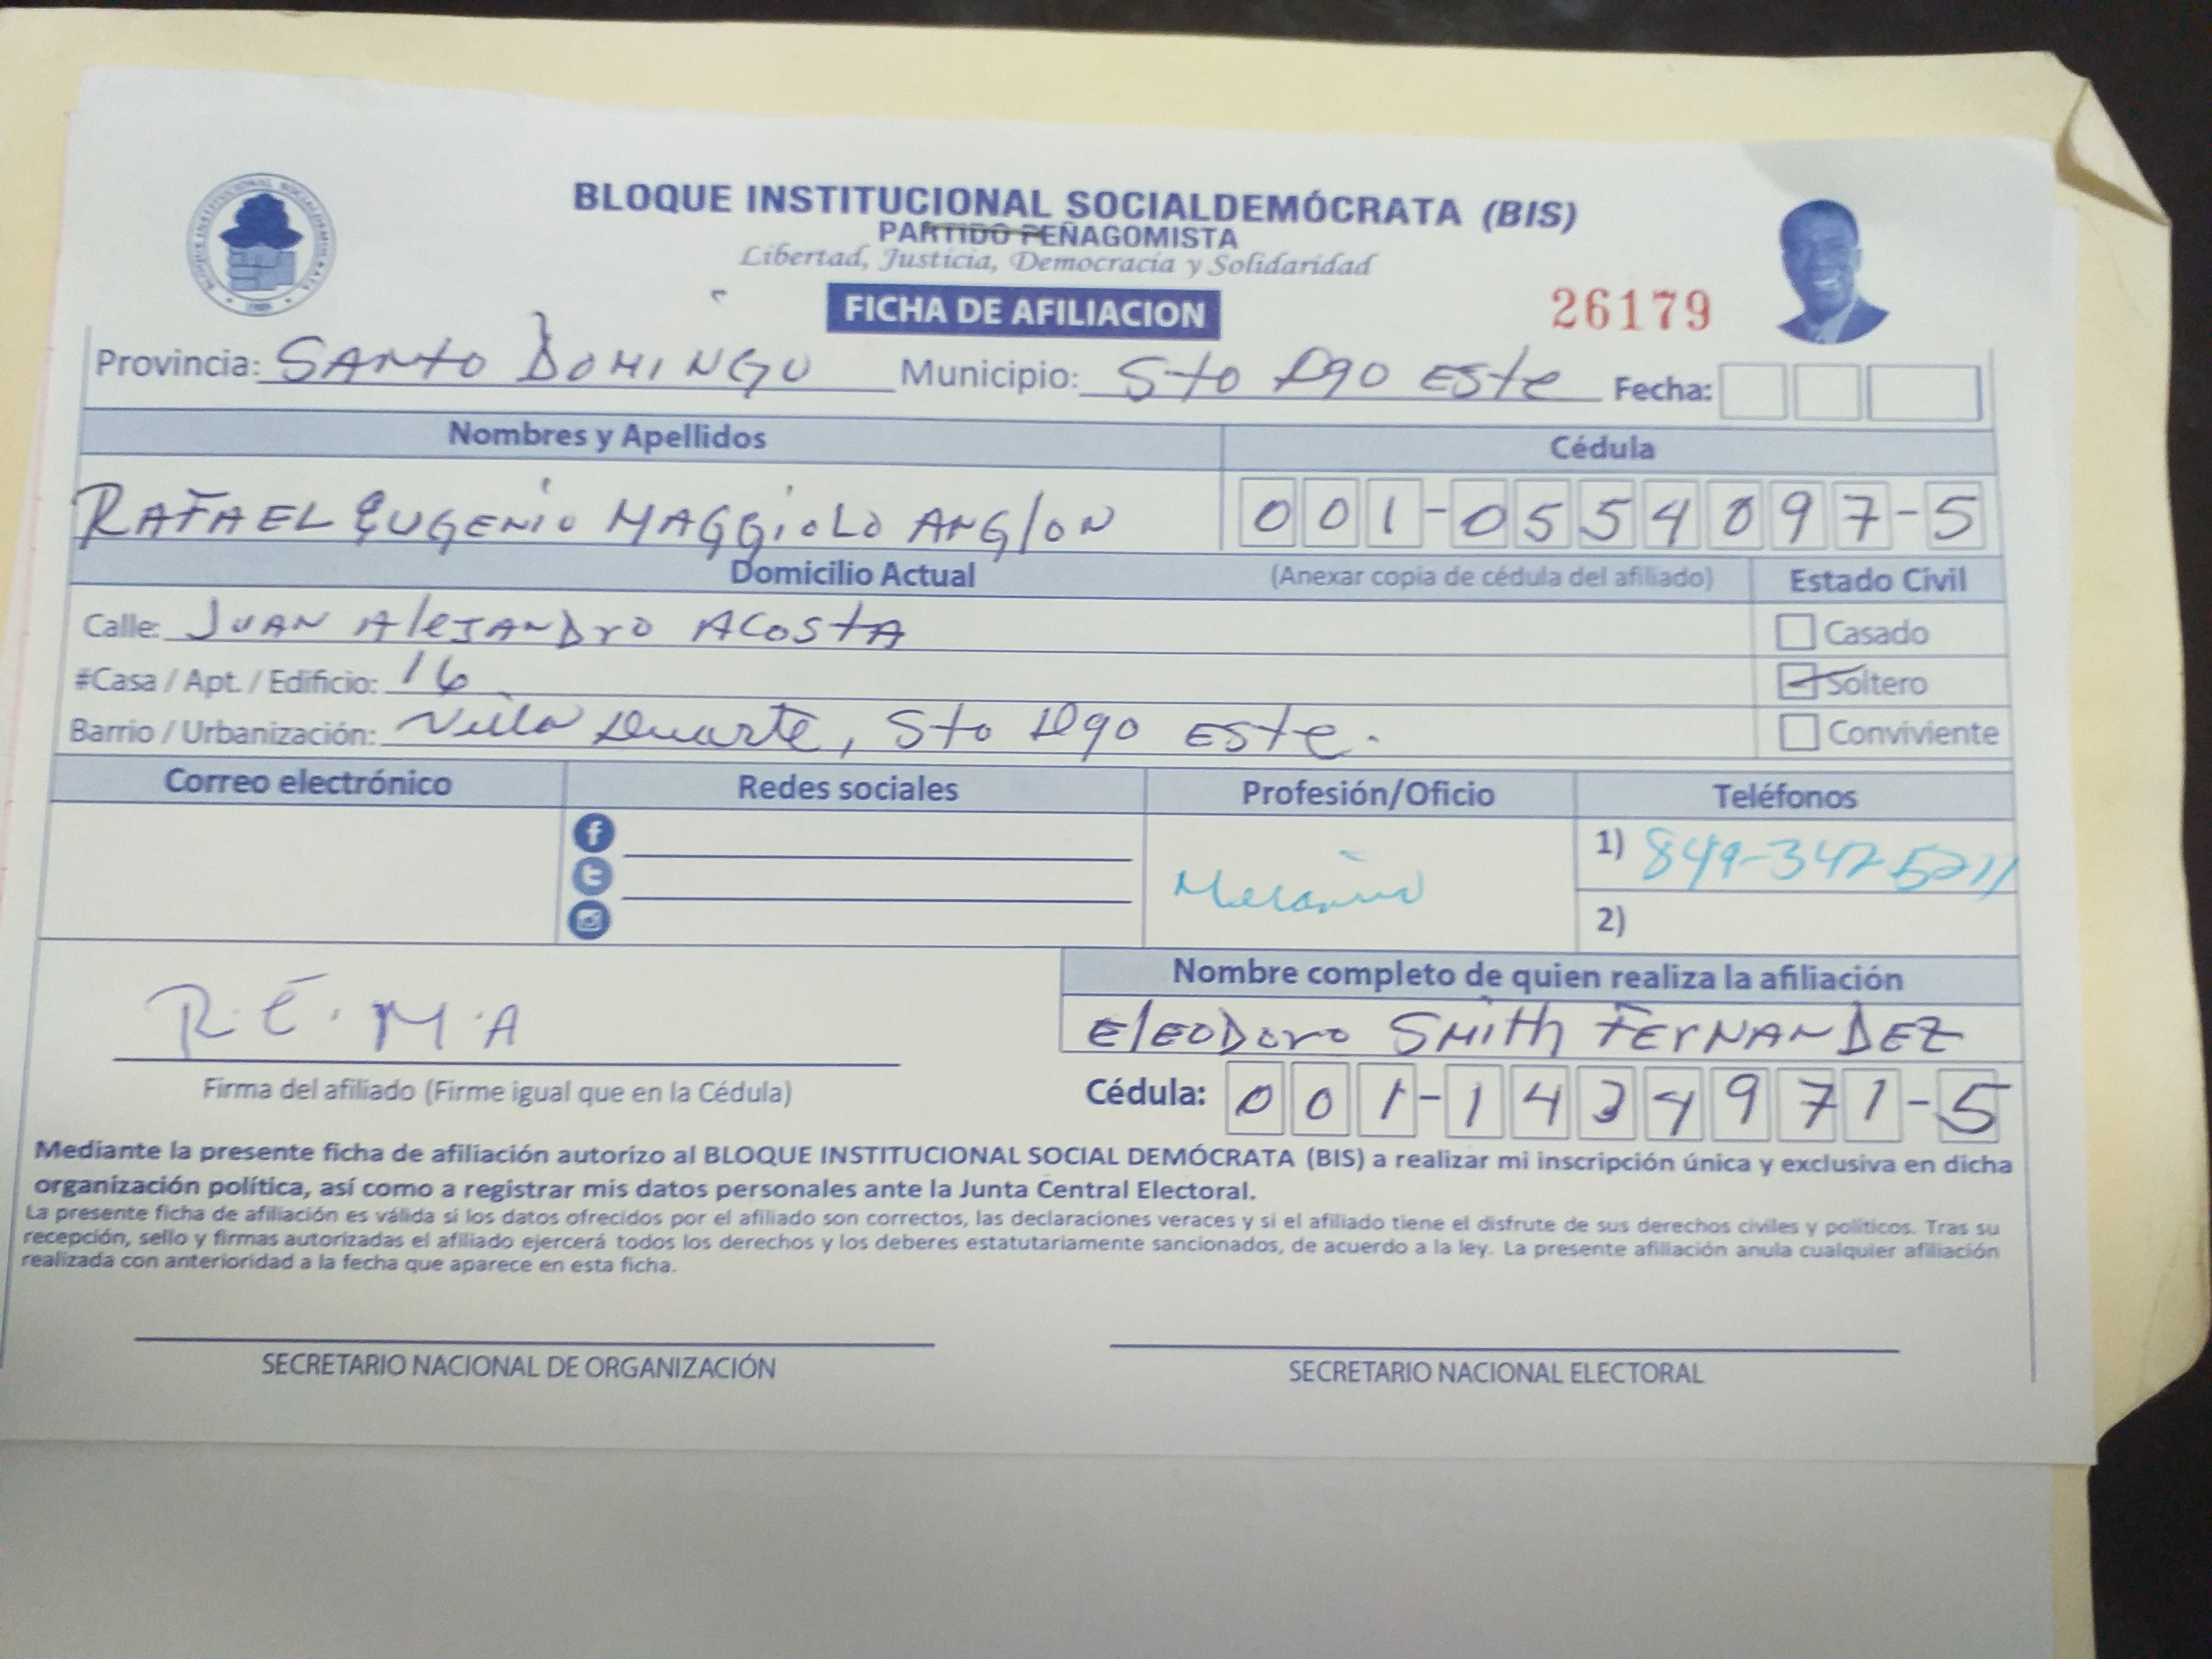 BLOQUE INSTITUCIONAL SOCIALDEMÓCRATA (BIS)
PARTIDO PEÑAGOMISTA
Libertad, Justicia, Democracia y Solidaridad
FICHA DE AFILIACION
26179
Provincia: SANTO DOMINGO Municipio: Sto Dgo ESte Fecha:
Nombres y Apellidos Cédula
RAFAEL EUGENIO MAGGIOLO ANGLON 001-0554097-5
Domicilio Actual (Anexar copia de cédula del afiliado) Estado Civil
Calle: JUAN AleJANDro ACOStA Casado
#Casa / Apt. / Edificio: 16 Soltero
Barrio / Urbanización: Villa Duarte, Sto Dgo Este. Conviviente
Correo electrónico Redes sociales Profesión/Oficio Teléfonos
1) 849-347-5211
2)
R.E.M.A
Firma del afiliado (Firme igual que en la Cédula)
Nombre completo de quien realiza la afiliación
ElEODoro SMith FErNANDEZ
Cédula: 001-1434971-5
Mediante la presente ficha de afiliación autorizo al BLOQUE INSTITUCIONAL SOCIAL DEMÓCRATA (BIS) a realizar mi inscripción única y exclusiva en dicha
organización política, así como a registrar mis datos personales ante la Junta Central Electoral.
La presente ficha de afiliación es válida si los datos ofrecidos por el afiliado son correctos, las declaraciones veraces y si el afiliado tiene el disfrute de sus derechos civiles y políticos. Tras su
recepción, sello y firmas autorizadas el afiliado ejercerá todos los derechos y los deberes estatutariamente sancionados, de acuerdo a la ley. La presente afiliación anula cualquier afiliación
realizada con anterioridad a la fecha que aparece en esta ficha.
SECRETARIO NACIONAL DE ORGANIZACIÓN SECRETARIO NACIONAL ELECTORAL